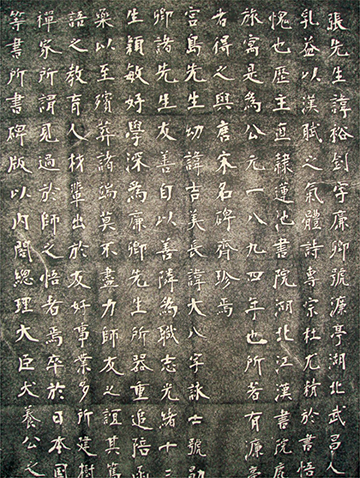 張先生諱裕釗字廉卿號濂亭湖北武昌人
乳益以漢賦之氣體詩專宗杜尤精於書悟
愧也歷主直隸蓮池書院湖北江漢書院鹿
旅寓是為公元一八九四年也所著有濂亭
者得之與唐宋名碑齊珍焉
宮島先生幼諱吉美長諱大八字詠士號勗
卿諸先生友善自以善隣為職志光緒十三
生穎敏好學深為廉卿先生所器重追陪函
藥以至殯葬諸端莫不盡力師友之誼其篤
語之教育人材輩出於友好事業多所建樹
禪家所謂見過於師之悟者焉卒於日本國
等書所書碑版以內閣總理大臣犬養公之